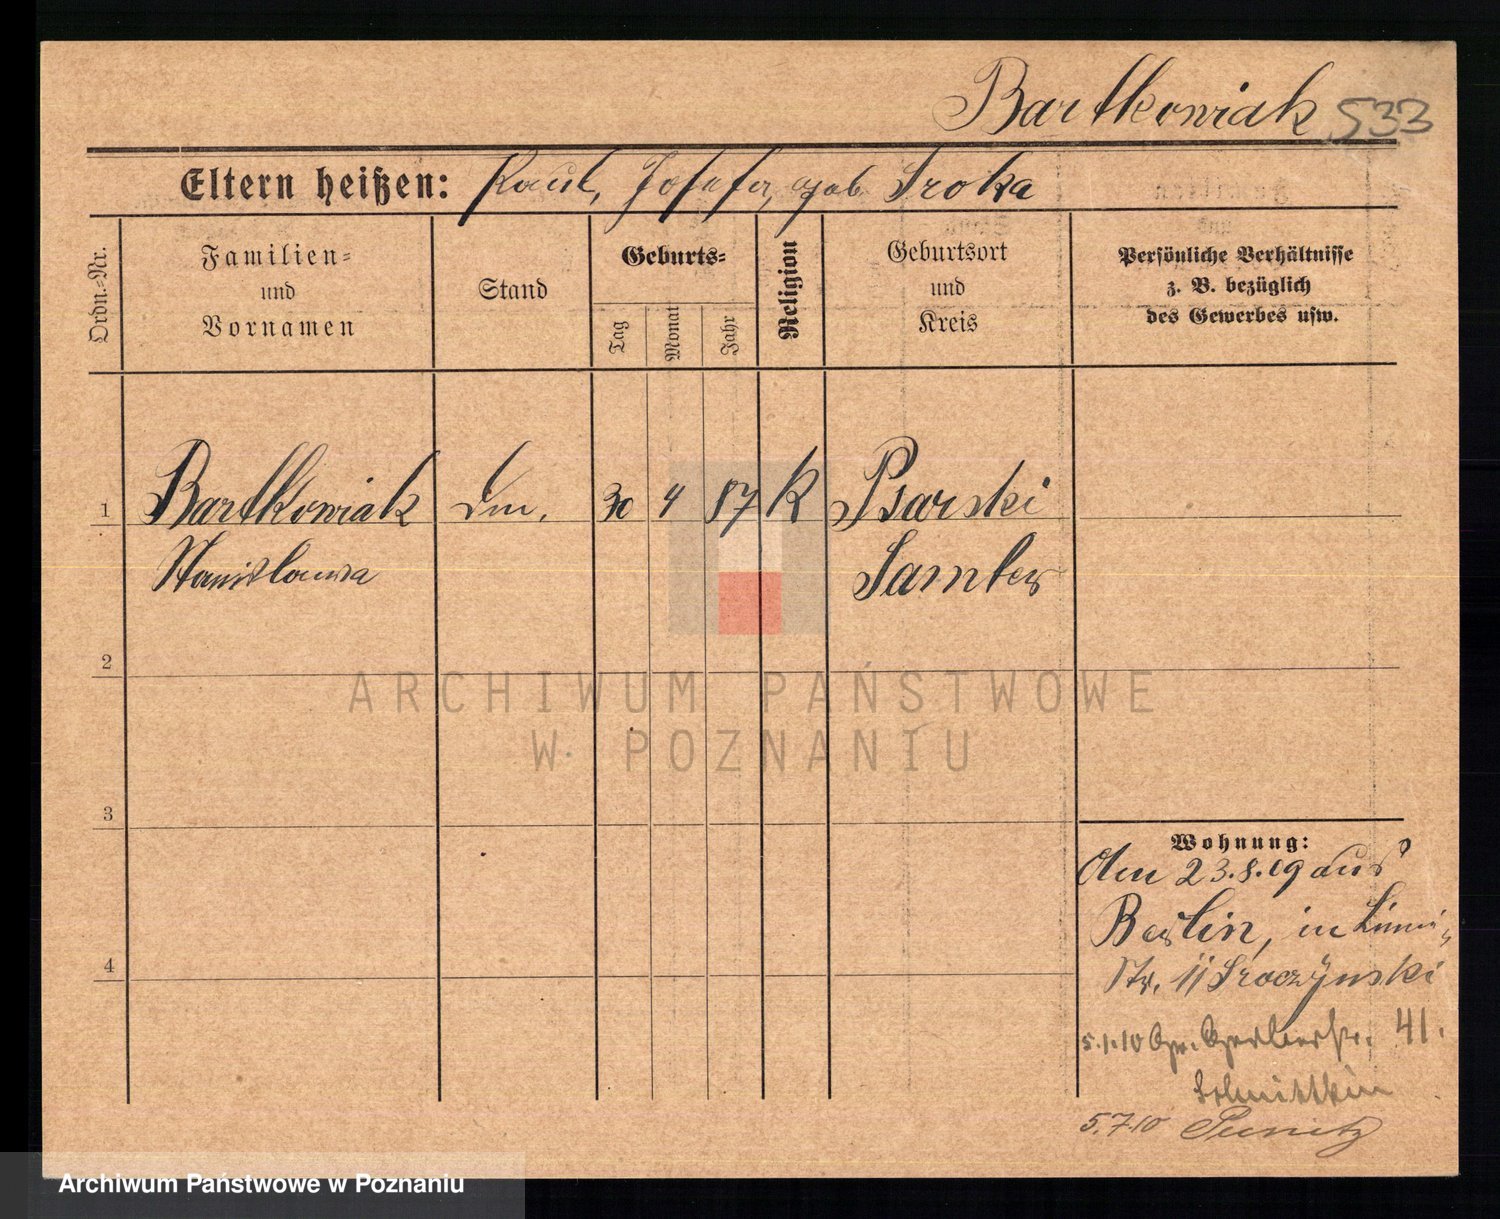 Bartkowiak 533
Eltern heißen: Paul, Josefa, geb Sroka
Ordn.-Nr.
Familien-
und
Vornamen
Stand
Geburts-
Tag
Monat
Jahr
Religion
Geburtsort
und
Kreis
Persönliche Verhältnisse
z. B. bezüglich
des Gewerbes usw.
1 Bartkowiak 30 4 87 K Psarski
Stanislawa Samter
2
ARCHIWUM PAŃSTWOWE
W POZNANIU
3
Wohnung:
23.8.09 aus
Berlin, in
Str. 11 Sroczynski
4
5.1.10 Gr. Gerberstr. 41.
5.7.10 Punitz
Archiwum Państwowe w Poznaniu